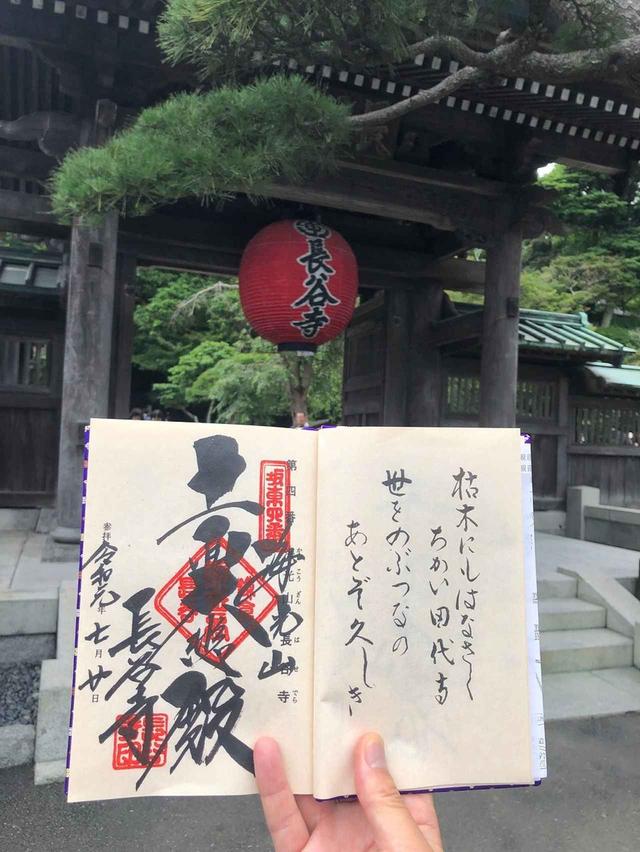 長谷寺
枯木にもはなさく
ちかい田代寺
世をのぶつなの
あとぞ久しき
坂東四番
第四番
海光山
長谷寺
はせでら
長谷寺
参拝
令和元年七月廿日